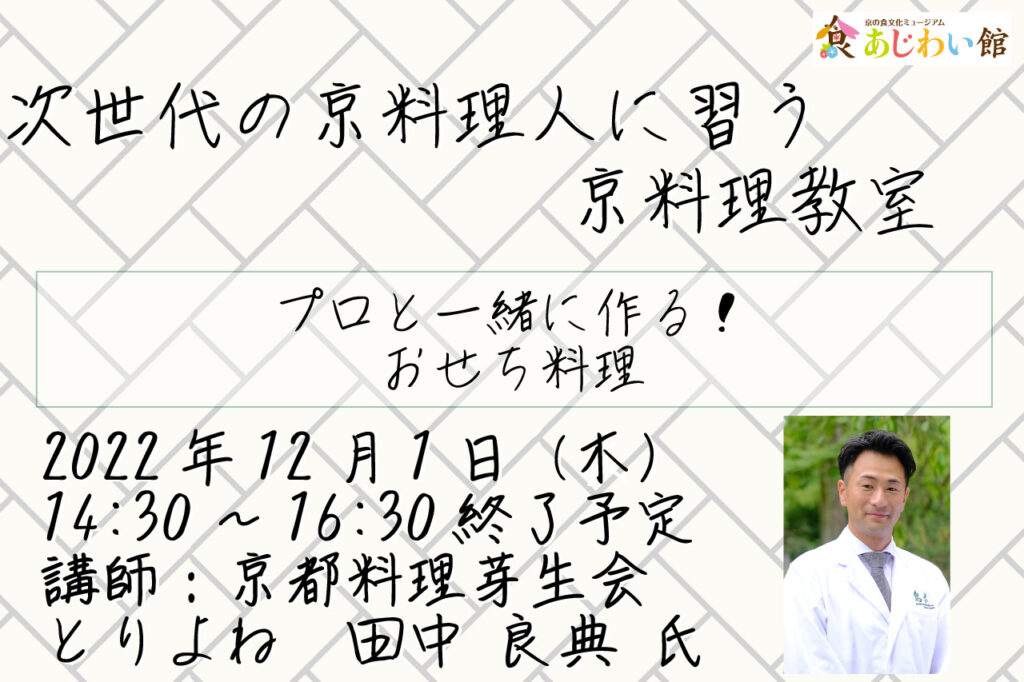 京の食文化ミュージアム
食あじわい館
次世代の京料理人に習う
京料理教室
プロと一緒に作る!
おせち料理
2022年12月1日（木）
14:30～16:30終了予定
講師：京都料理芽生会
とりよね 田中 良典 氏